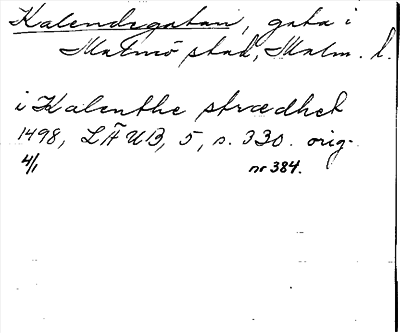 Kalendegatan, gata i
Malmö stad, Malm. l.
i Kalenthe strædhet
1498, LÄUB, 5, s. 330. orig.
4/1 nr 384.